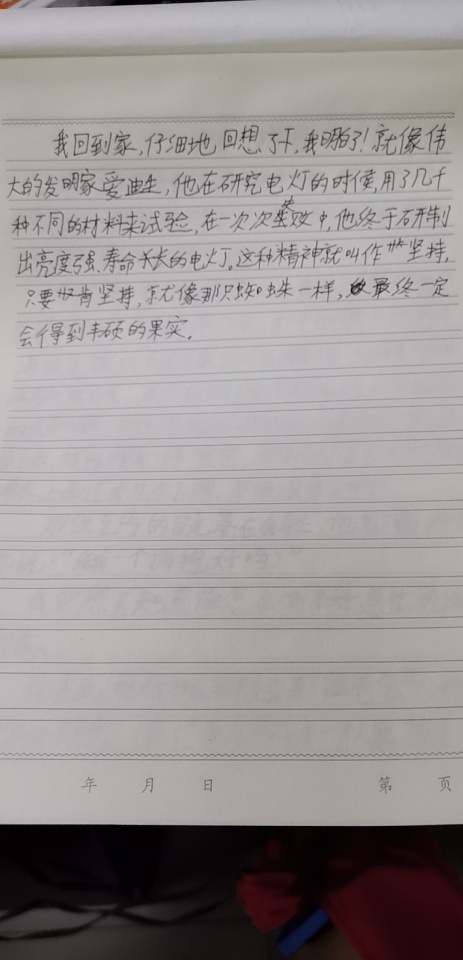 我回到家,仔细地回想了下,我明白了!就像伟
大的发明家爱迪生,他在研究电灯的时候,用了几千
种不同的材料来试验,在一次次失败中,他终于研制
出亮度强、寿命长的电灯。这种精神就叫作坚持,
只要肯坚持,就像那只蜘蛛一样,最终一定
会得到丰硕的果实。
年 月 日 第 页